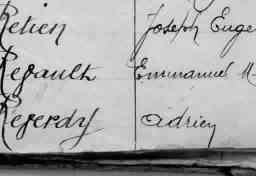 Retien Joseph Euge
Regault Emmanuel M
Rejerdy Adrien